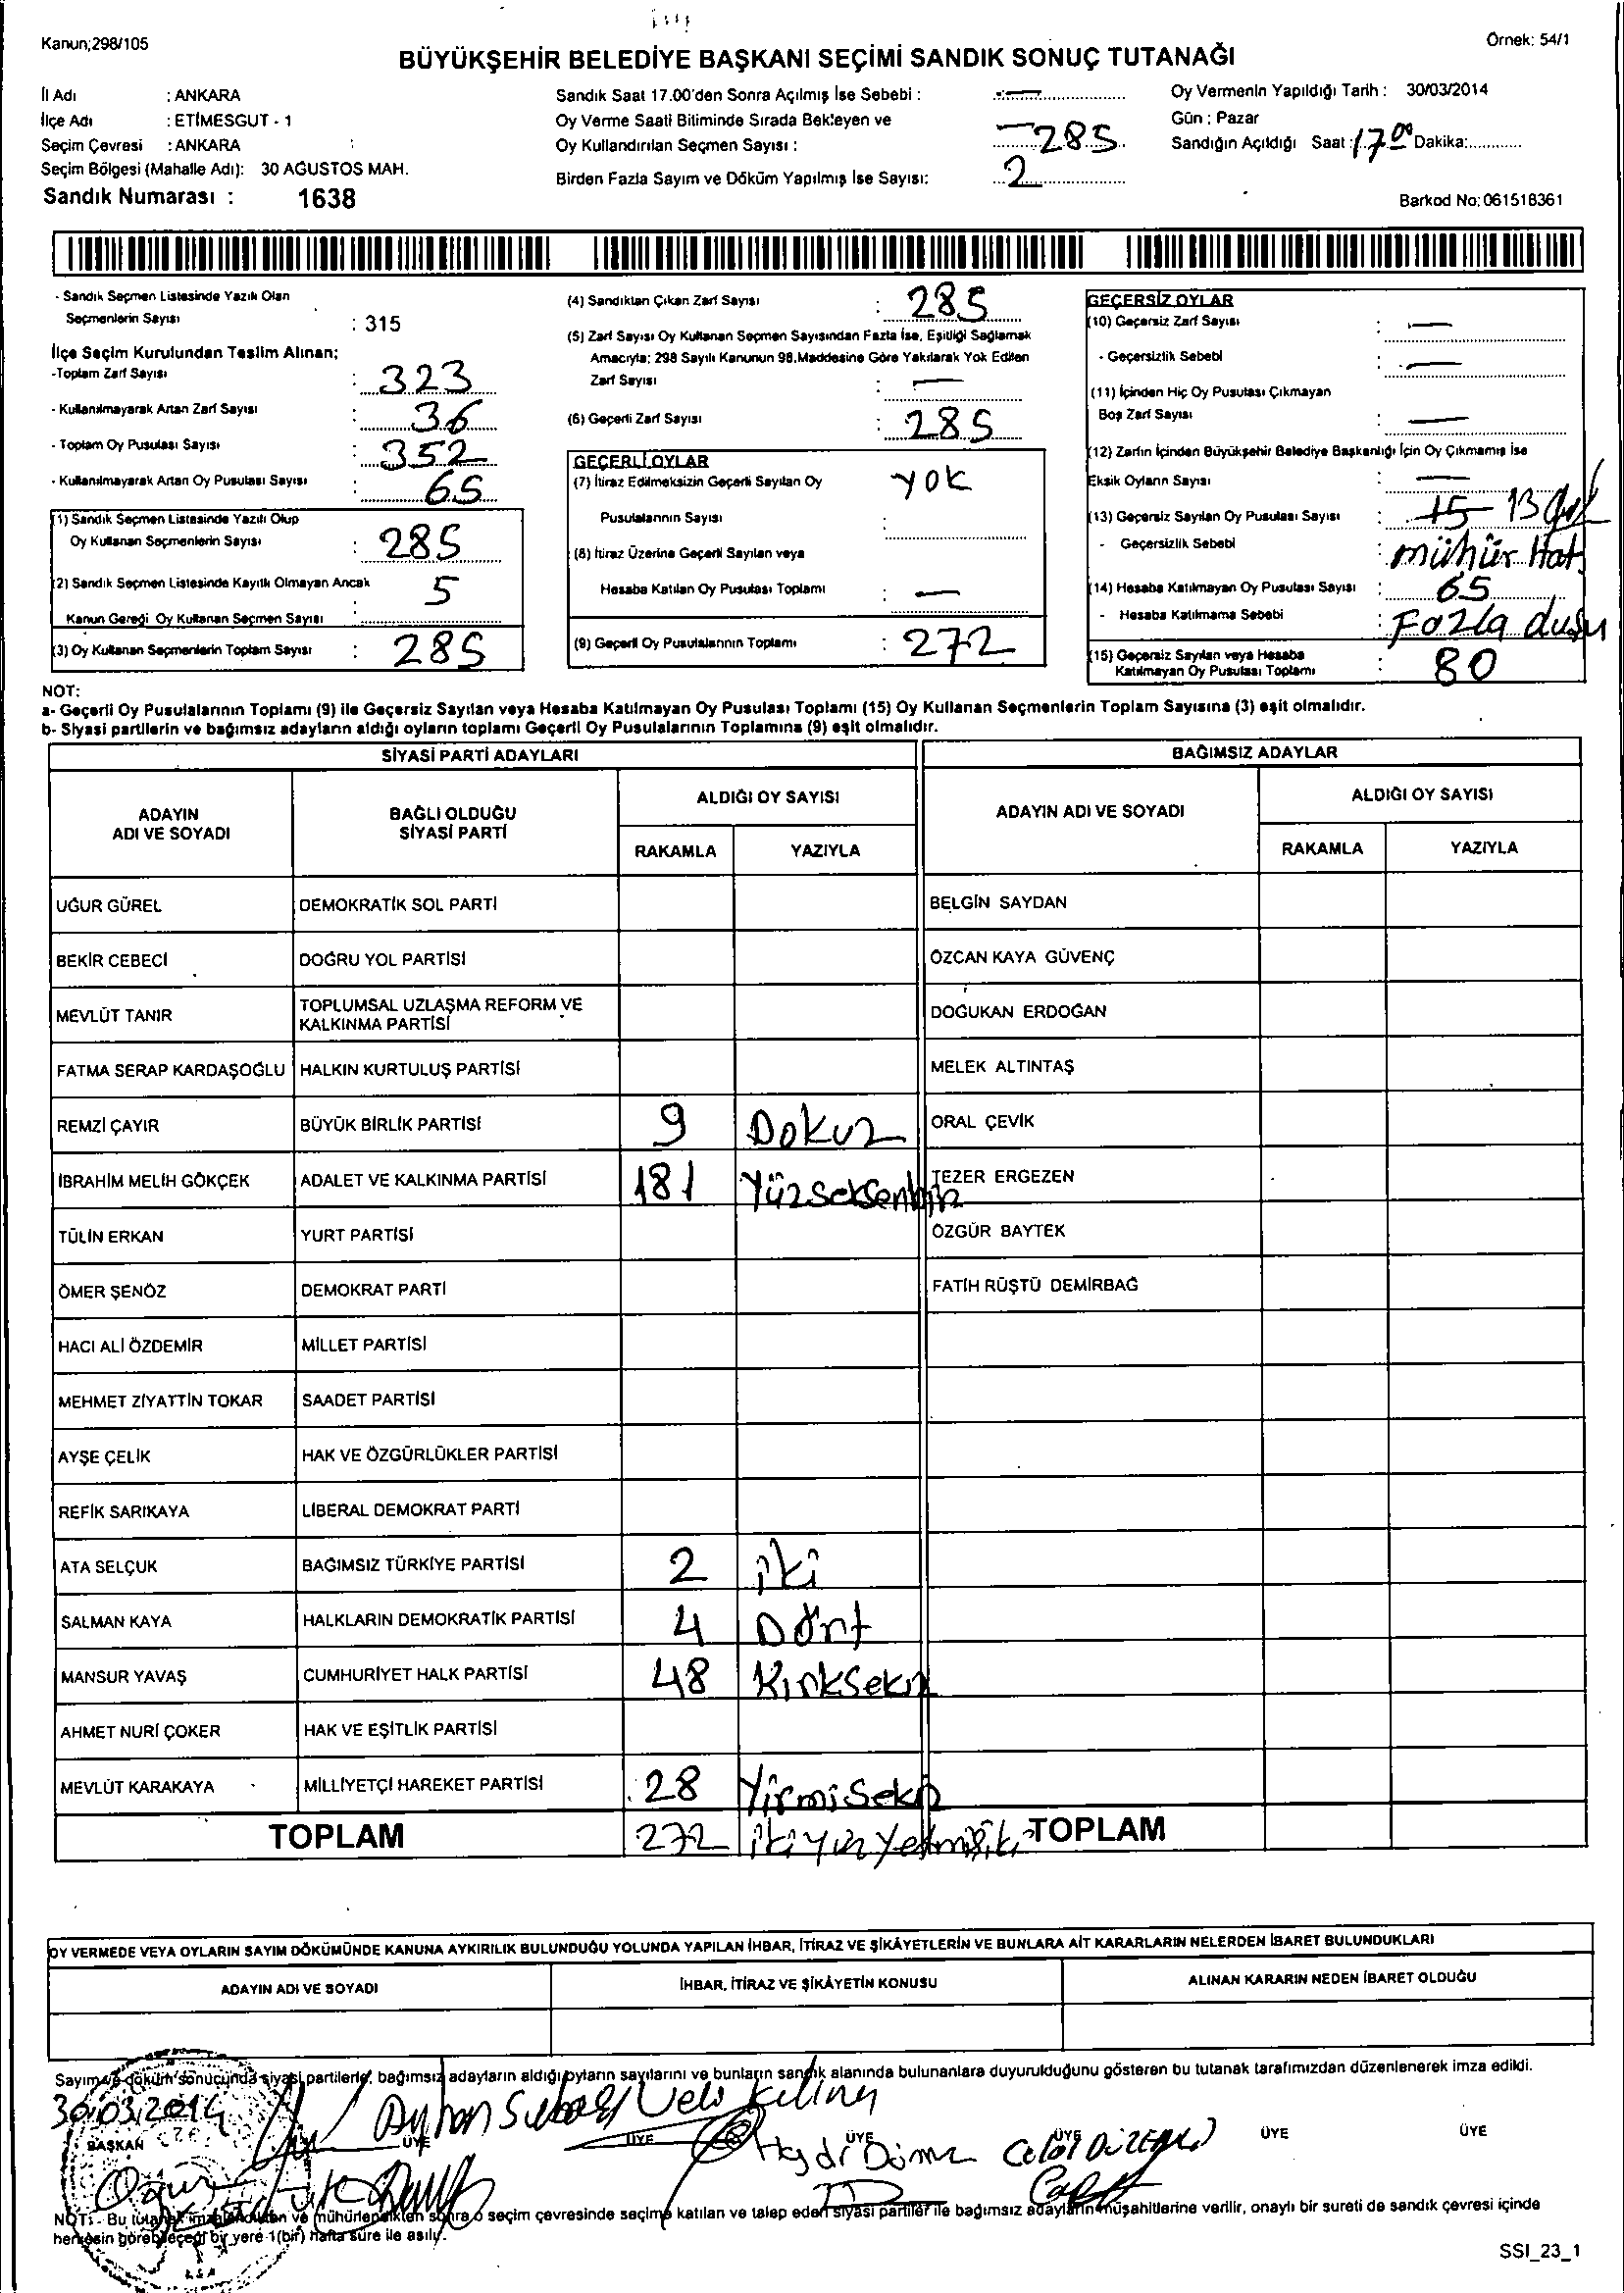 Kanun;298/105
Örnek: 54/1
BÜYÜKŞEHİR BELEDİYE BAŞKANI SEÇİMİ SANDIK SONUÇ TUTANAĞI
İl Adı : ANKARA
İlçe Adı : ETİMESGUT - 1
Seçim Çevresi : ANKARA
Seçim Bölgesi (Mahalle Adı): 30 AĞUSTOS MAH.
Sandık Numarası : 1638
Sandık Saat 17.00'den Sonra Açılmış İse Sebebi : —
Oy Verme Saati Bitiminde Sırada Bekleyen ve
Oy Kullandırılan Seçmen Sayısı : 285
Birden Fazla Sayım ve Döküm Yapılmış İse Sayısı: 2
Oy Vermenin Yapıldığı Tarih : 30/03/2014
Gün : Pazar
Sandığın Açıldığı Saat : 17 00 Dakika:
Barkod No: 061518361
- Sandık Seçmen Listesinde Yazılı Olan
Seçmenlerin Sayısı : 315
İlçe Seçim Kurulundan Teslim Alınan;
-Toplam Zarf Sayısı : 323
- Kullanılmayarak Artan Zarf Sayısı : 36
- Toplam Oy Pusulası Sayısı : 352
- Kullanılmayarak Artan Oy Pusulası Sayısı : 65
(1) Sandık Seçmen Listesinde Yazılı Olup
Oy Kullanan Seçmenlerin Sayısı : 285
(2) Sandık Seçmen Listesinde Kayıtlı Olmayan Ancak
Kanun Gereği Oy Kullanan Seçmen Sayısı : 5
(3) Oy Kullanan Seçmenlerin Toplam Sayısı : 285
(4) Sandıktan Çıkan Zarf Sayısı : 285
(5) Zarf Sayısı Oy Kullanan Seçmen Sayısından Fazla İse, Eşitliği Sağlamak
Amacıyla; 298 Sayılı Kanunun 98.Maddesine Göre Yakılarak Yok Edilen
Zarf Sayısı : —
(6) Geçerli Zarf Sayısı : 285
GEÇERLİ OYLAR
(7) İtiraz Edilmeksizin Geçerli Sayılan Oy
Pusulalarının Sayısı : YOK
(8) İtiraz Üzerine Geçerli Sayılan veya
Hesaba Katılan Oy Pusulası Toplamı : —
(9) Geçerli Oy Pusulalarının Toplamı : 272
GEÇERSİZ OYLAR
(10) Geçersiz Zarf Sayısı : —
- Geçersizlik Sebebi : —
(11) İçinden Hiç Oy Pusulası Çıkmayan
Boş Zarf Sayısı : —
(12) Zarfın İçinden Büyükşehir Belediye Başkanlığı İçin Oy Çıkmamış İse
Eksik Oyların Sayısı : —
(13) Geçersiz Sayılan Oy Pusulası Sayısı : 15 13
- Geçersizlik Sebebi : mühür Hat
(14) Hesaba Katılmayan Oy Pusulası Sayısı : 65
- Hesaba Katılmama Sebebi : Fazla
(15) Geçersiz Sayılan veya Hesaba
Katılmayan Oy Pusulası Toplamı : 80
NOT:
a- Geçerli Oy Pusulalarının Toplamı (9) ile Geçersiz Sayılan veya Hesaba Katılmayan Oy Pusulası Toplamı (15) Oy Kullanan Seçmenlerin Toplam Sayısına (3) eşit olmalıdır.
b- Siyasi partilerin ve bağımsız adayların aldığı oyların toplamı Geçerli Oy Pusulalarının Toplamına (9) eşit olmalıdır.
SİYASİ PARTİ ADAYLARI
BAĞIMSIZ ADAYLAR
ADAYIN ADI VE SOYADI
BAĞLI OLDUĞU SİYASİ PARTİ
ALDIĞI OY SAYISI
RAKAMLA YAZIYLA
ADAYIN ADI VE SOYADI
ALDIĞI OY SAYISI
RAKAMLA YAZIYLA
UĞUR GÜREL DEMOKRATİK SOL PARTİ BELGİN SAYDAN
BEKİR CEBECİ DOĞRU YOL PARTİSİ ÖZCAN KAYA GÜVENÇ
MEVLÜT TANIR TOPLUMSAL UZLAŞMA REFORM VE KALKINMA PARTİSİ DOĞUKAN ERDOĞAN
FATMA SERAP KARDAŞOĞLU HALKIN KURTULUŞ PARTİSİ MELEK ALTINTAŞ
REMZİ ÇAYIR BÜYÜK BİRLİK PARTİSİ 9 Dokuz ORAL ÇEVİK
İBRAHİM MELİH GÖKÇEK ADALET VE KALKINMA PARTİSİ 181 Yüzseksenbir TEZER ERGEZEN
TÜLİN ERKAN YURT PARTİSİ ÖZGÜR BAYTEK
ÖMER ŞENÖZ DEMOKRAT PARTİ FATİH RÜŞTÜ DEMİRBAĞ
HACI ALİ ÖZDEMİR MİLLET PARTİSİ
MEHMET ZİYATTİN TOKAR SAADET PARTİSİ
AYŞE ÇELİK HAK VE ÖZGÜRLÜKLER PARTİSİ
REFİK SARIKAYA LİBERAL DEMOKRAT PARTİ
ATA SELÇUK BAĞIMSIZ TÜRKİYE PARTİSİ 2 iki
SALMAN KAYA HALKLARIN DEMOKRATİK PARTİSİ 4 Dört
MANSUR YAVAŞ CUMHURİYET HALK PARTİSİ 48 Kırksekiz
AHMET NURİ ÇOKER HAK VE EŞİTLİK PARTİSİ
MEVLÜT KARAKAYA MİLLİYETÇİ HAREKET PARTİSİ 28 Yirmisekiz
TOPLAM 272 ikiyüzyetmişiki TOPLAM
OY VERMEDE VEYA OYLARIN SAYIM DÖKÜMÜNDE KANUNA AYKIRILIK BULUNDUĞU YOLUNDA YAPILAN İHBAR, İTİRAZ VE ŞİKÂYETLERİN VE BUNLARA AİT KARARLARIN NELERDEN İBARET BULUNDUKLARI
ADAYIN ADI VE SOYADI İHBAR, İTİRAZ VE ŞİKÂYETİN KONUSU ALINAN KARARIN NEDEN İBARET OLDUĞU
Sayım ve döküm sonucunda siyasi partilerle, bağımsız adayların aldığı oyların sayılarını ve bunların sandık alanında bulunanlara duyurulduğunu gösteren bu tutanak tarafımızdan düzenlenerek imza edildi.
30.03.2014 Ayhan Veli Kılınç
BAŞKAN ÜYE ÜYE ÜYE ÜYE ÜYE ÜYE
Haydr Celal
NOT: - Bu tutanak imzalandıktan ve mühürlendikten sonra o seçim çevresinde seçime katılan ve talep eden siyasi partiler ile bağımsız adayların müşahitlerine verilir, onaylı bir sureti de sandık çevresi içinde
herkesin görebileceği bir yere 1(bir) hafta süre ile asılır.
SSI_23_1